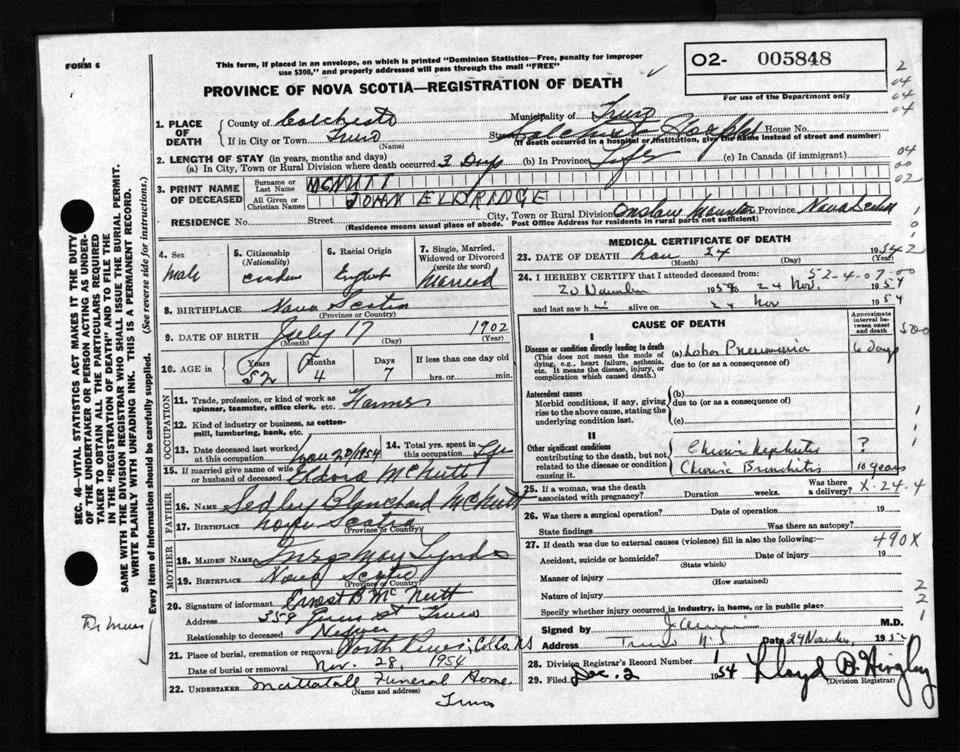 FORM 6
This form, if placed in an envelope, on which is printed "Dominion Statistics—Free, penalty for improper
use $300," and properly addressed will pass through the mail "FREE"
02- 005848
For use of the Department only
PROVINCE OF NOVA SCOTIA—REGISTRATION OF DEATH
2
04
04
04
04
00
02
1. PLACE OF DEATH
County of Colchester Municipality of Truro
If in City or Town Truro Street Hospital House No.
(Name) (If death occurred in a hospital or institution, give the name instead of street and number)
2. LENGTH OF STAY (in years, months and days)
(a) In City, Town or Rural Division where death occurred 3 Days (b) In Province Life (c) In Canada (if immigrant)
3. PRINT NAME OF DECEASED
Surname or Last Name McNUTT
All Given or Christian Names JOHN ELDRIDGE
RESIDENCE No. Street City, Town or Rural Division Onslow Mountain Province Nova Scotia
(Residence means usual place of abode. Post Office Address for residents in rural parts not sufficient)
4. Sex
Male
5. Citizenship
(Nationality)
6. Racial Origin
English
7. Single, Married, Widowed or Divorced
(write the word)
Married
8. BIRTHPLACE Nova Scotia
(Province or Country)
9. DATE OF BIRTH July 17 1902
(Month) (Day) (Year)
10. AGE in
Years 52 Months 4 Days 7
If less than one day old
hrs. or min.
OCCUPATION
11. Trade, profession, or kind of work as
spinner, teamster, office clerk, etc. Farmer
12. Kind of industry or business, as cotton-
mill, lumbering, bank, etc.
13. Date deceased last worked at this occupation Nov 20/1954
14. Total yrs. spent in this occupation Life
15. If married give name of wife or husband of deceased McNutt
FATHER
16. NAME Sedley Blanchard McNutt
17. BIRTHPLACE Nova Scotia
(Province or Country)
MOTHER
18. MAIDEN NAME May Lynds
19. BIRTHPLACE Nova Scotia
(Province or Country)
20. Signature of informant Ernest B McNutt
Address 358 St Truro
Relationship to deceased
21. Place of burial, cremation or removal North River, Col. Co. N.S
Date of burial or removal Nov. 28, 1954
22. UNDERTAKER Mattatall Funeral Home
(Name and address)
Truro
MEDICAL CERTIFICATE OF DEATH
23. DATE OF DEATH Nov 24 1954 2
(Month) (Day) (Year)
52-4-07.00
24. I HEREBY CERTIFY that I attended deceased from:
20 November 1954 to 24 Nov. 1954
and last saw h alive on 24 Nov 1954
CAUSE OF DEATH
Approximate interval between onset and death
500
I
Disease or condition directly leading to death
(This does not mean the mode of
dying, e.g., heart failure, asthenia,
etc. It means the disease, injury, or
complication which caused death.)
(a) Lobar Pneumonia 6 Days
due to (or as a consequence of)
Antecedent causes
Morbid conditions, if any, giving
rise to the above cause, stating the
underlying condition last
(b)
due to (or as a consequence of)
(c)
II
Other significant conditions
contributing to the death, but not
related to the disease or condition
causing it.
Chronic Nephritis ?
Chronic Bronchitis 10 years
25. If a woman, was the death
associated with pregnancy? Duration weeks. Was there a delivery? X-24.4
26. Was there a surgical operation? Date of operation 19
State findings Was there an autopsy?
27. If death was due to external causes (violence) fill in also the following:— 490X
Accident, suicide or homicide? Date of injury 19
(State which)
Manner of injury
(How sustained)
Nature of injury
Specify whether injury occurred in industry, in home, or in public place
2
2
1
Signed by M.D.
Address Truro N.S Date 24 November, 1954
28. Division Registrar's Record Number 1
29. Filed Dec. 2 1954 Lloyd
(Division Registrar)
SEC. 46—VITAL STATISTICS ACT MAKES IT THE DUTY
OF THE UNDERTAKER OR PERSON ACTING AS UNDER-
TAKER TO OBTAIN ALL THE PARTICULARS REQUIRED
IN THE "REGISTRATION OF DEATH" AND TO FILE THE
SAME WITH THE DIVISION REGISTRAR WHO SHALL ISSUE THE BURIAL PERMIT.
WRITE PLAINLY WITH UNFADING INK. THIS IS A PERMANENT RECORD.
Every item of Information should be carefully supplied. (See reverse side for instructions.)